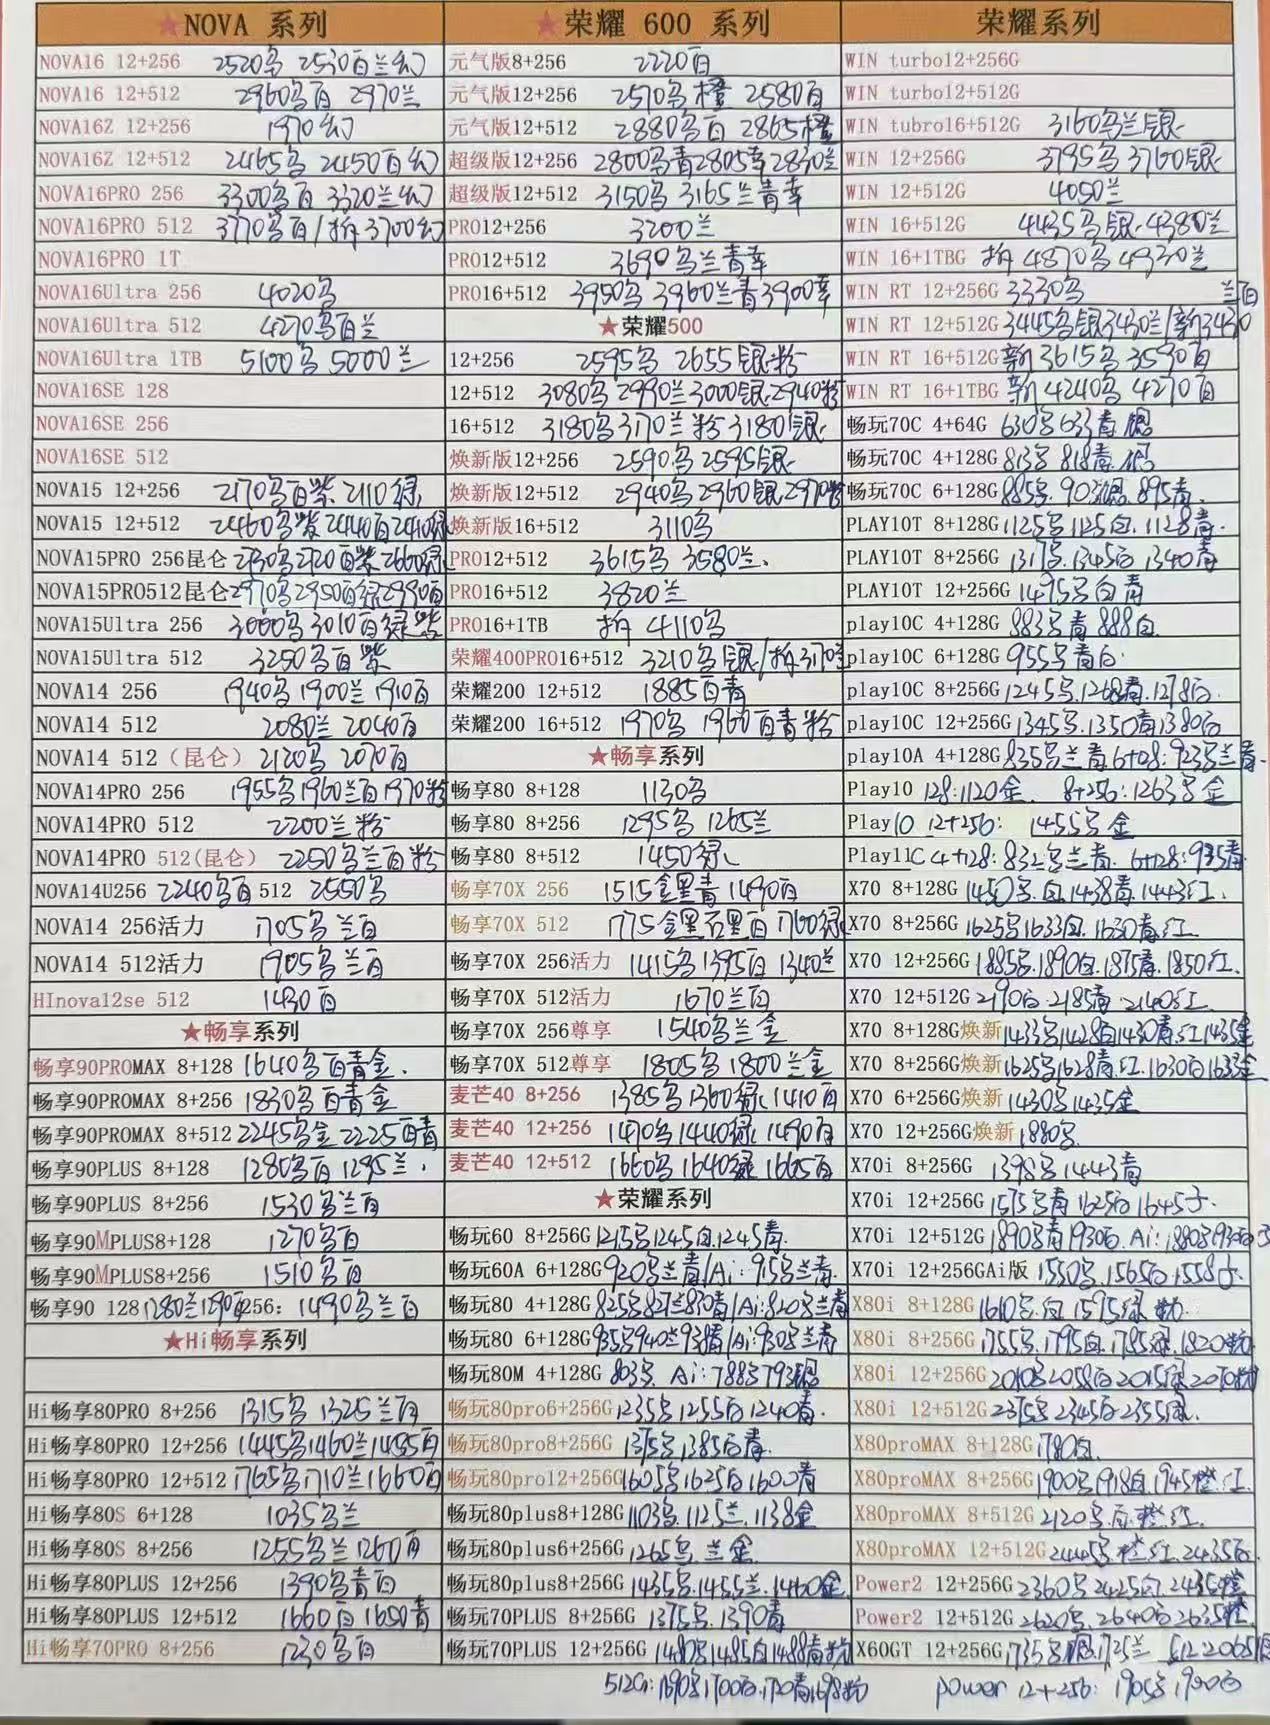 ★NOVA 系列
NOVA16 12+256 2520乌 2530百兰幻
NOVA16 12+512 2960乌百 2970兰
NOVA16Z 12+256 1970幻
NOVA16Z 12+512 2465乌 2450百幻
NOVA16PRO 256 3300乌百 3320兰幻
NOVA16PRO 512 3770乌百/拆3700幻
NOVA16PRO 1T
NOVA16Ultra 256 4020乌
NOVA16Ultra 512 4270乌百兰
NOVA16Ultra 1TB 5100乌 5000兰
NOVA16SE 128
NOVA16SE 256
NOVA16SE 512
NOVA15 12+256 2170乌百紫 2110绿
NOVA15 12+512 2460乌紫 2440百2410绿
NOVA15PRO 256昆仑 2730乌2720百紫2660绿
NOVA15PRO512昆仑 2970乌2950百绿2990百
NOVA15Ultra 256 3000乌3010百绿紫
NOVA15Ultra 512 3250乌百紫
NOVA14 256 1940乌1900兰1910百
NOVA14 512 2080兰 2040百
NOVA14 512(昆仑) 2120乌 2070百
NOVA14PRO 256 1955乌1960兰百1970粉
NOVA14PRO 512 2200兰粉
NOVA14PRO 512(昆仑) 2250乌兰百粉
NOVA14U256 2240乌百 512 2550乌
NOVA14 256活力 1705乌兰百
NOVA14 512活力 1905乌兰百
HInova12se 512 1430百
★畅享系列
畅享90PROMAX 8+128 1640乌百青金
畅享90PROMAX 8+256 1830乌百青金
畅享90PROMAX 8+512 2245乌金2225百青
畅享90PLUS 8+128 1280乌百1295兰
畅享90PLUS 8+256 1530乌兰百
畅享90MPLUS8+128 1270乌百
畅享90MPLUS8+256 1510乌百
畅享90 128 1280兰1290百256: 1490乌兰百
★Hi畅享系列
Hi畅享80PRO 8+256 1315乌 1325兰百
Hi畅享80PRO 12+256 1445乌1460兰1455百
Hi畅享80PRO 12+512 1765乌1710兰1660百
Hi畅享80S 6+128 1035乌兰
Hi畅享80S 8+256 1255乌兰1260百
Hi畅享80PLUS 12+256 1390乌青百
Hi畅享80PLUS 12+512 1660百1650青
Hi畅享70PRO 8+256 1230乌百
★荣耀 600 系列
元气版8+256 2220百
元气版12+256 2570乌橙 2580百
元气版12+512 2880乌百 2865橙
超级版12+256 2800乌青2805幸2830兰
超级版12+512 3150乌 3165兰青幸
PRO12+256 3200兰
PRO12+512 3690乌兰青幸
PRO16+512 3950乌 3960兰青3900幸
★荣耀500
12+256 2595乌 2655银粉
12+512 3080乌2990兰3000银2940粉
16+512 3180乌3170兰粉3180银
焕新版12+256 2590乌2595银
焕新版12+512 2940乌2960银2970粉
焕新版16+512 3110乌
PRO12+512 3615乌 3580兰
PRO16+512 3820兰
PRO16+1TB 拆 4110乌
荣耀400PRO16+512 3210乌银/拆3170
荣耀200 12+512 1885百青
荣耀200 16+512 1970乌 1960百青粉
★畅享系列
畅享80 8+128 1130乌
畅享80 8+256 1295乌 1265兰
畅享80 8+512 1450绿
畅享70X 256 1515金黑青1490百
畅享70X 512 1775金黑石黑百1760绿
畅享70X 256活力 1415乌1395百1340兰
畅享70X 512活力 1670兰百
畅享70X 256尊享 1540乌兰金
畅享70X 512尊享 1805乌1800兰金
麦芒40 8+256 1385乌1360绿1410百
麦芒40 12+256 1470乌1440绿1490百
麦芒40 12+512 1660乌1640绿1665百
★荣耀系列
畅玩60 8+256G 1215乌1245白1245青
畅玩60A 6+128G 920乌兰青/Ai: 915乌兰青
畅玩80 4+128G 825乌827兰830青/Ai:820乌兰青
畅玩80 6+128G 935乌940兰938青/Ai:930乌兰青
畅玩80M 4+128G 803乌 Ai:788乌793银
畅玩80pro6+256G 1235乌1255白1240青
畅玩80pro8+256G 1375乌1385白青
畅玩80pro12+256G 1605乌1625白1600青
畅玩80plus8+128G 1103乌1125兰1138金
畅玩80plus6+256G 1265乌兰金
畅玩80plus8+256G 1435乌1455兰1460金
畅玩70PLUS 8+256G 1375乌1390青
畅玩70PLUS 12+256G 1480乌1485白1488青粉
512G:1690乌1700白1720青1698粉
荣耀系列
WIN turbo12+256G
WIN turbo12+512G
WIN tubro16+512G 3160乌兰银
WIN 12+256G 3795乌3760银
WIN 12+512G 4050兰
WIN 16+512G 4435乌银4380兰
WIN 16+1TBG 拆 4870乌4930兰
WIN RT 12+256G 3330乌 兰百
WIN RT 12+512G 3445乌银3430兰/新3430
WIN RT 16+512G 新3615乌3590百
WIN RT 16+1TBG 新4240乌 4270百
畅玩70C 4+64G 630乌633青银
畅玩70C 4+128G 813乌818青银
畅玩70C 6+128G 885乌903银895青
PLAY10T 8+128G 1125乌1125白1128青
PLAY10T 8+256G 1317乌1345白1340青
PLAY10T 12+256G 1495乌白青
play10C 4+128G 883乌青888白
play10C 6+128G 955乌青白
play10C 8+256G 1245乌1268青1278白
play10C 12+256G 1345乌1350青1380白
play10A 4+128G 835乌兰青6+128:923乌兰青
Play10 128:1120金 8+256:1263乌金
Play10 12+256: 1455乌金
Play11C 4+128:832乌兰青 6+128:935青
X70 8+128G 1450乌白1438青1443红
X70 8+256G 1625乌1633白1630青红
X70 12+256G 1885乌1890白1875青1850红
X70 12+512G 2190白2185青2140红
X70 8+128G焕新 1433乌1428白1430青红1435金
X70 8+256G焕新 1625乌1628青红1630白1633金
X70 6+256G焕新 1430乌1435金
X70 12+256G焕新 1880乌
X70i 8+256G 1398乌1443青
X70i 12+256G 1575乌青1625白1645子
X70i 12+512G 1890乌青1930白Ai:1880乌1930白子
X70i 12+256GAi版 1550乌1565白1558子
X80i 8+128G 1610乌白1595绿粉
X80i 8+256G 1755乌1795白1785绿1820粉
X80i 12+256G 2010乌2058白2015绿2070粉
X80i 12+512G 2375乌2345白2355绿
X80proMAX 8+128G 1780白
X80proMAX 8+256G 1900乌1918白1945橙红
X80proMAX 8+512G 2120乌白橙红
X80proMAX 12+512G 2445乌橙红2435白
Power2 12+256G 2360乌2425白2435橙
Power2 12+512G 2620乌2640白2635橙
X60GT 12+256G 1735乌银1725兰 512 2065银
power 12+256: 1905乌1900白